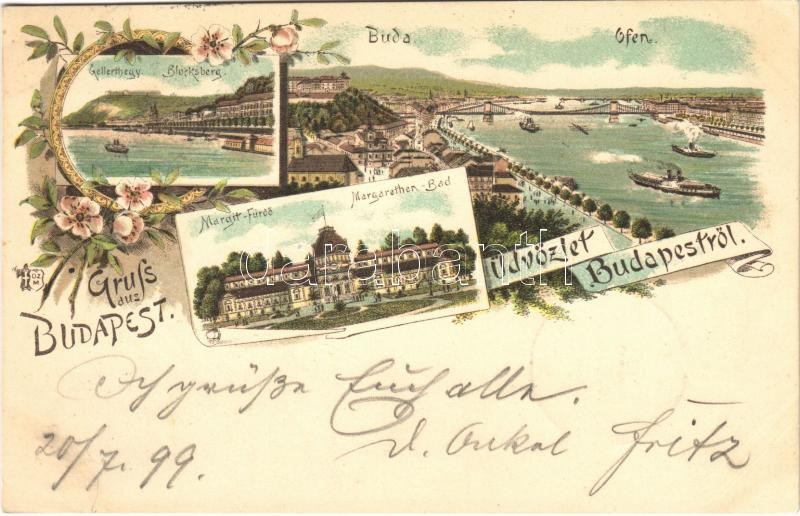 Buda Ofen.
Gellerthegy. Blocksberg.
Margit-Fürdő Margarethen-Bad
Üdvözlet
Budapestről.
Gruss
aus
BUDAPEST.
darabanth
Ich grüße Euch alle.
20/7. 99. d. Onkel Fritz